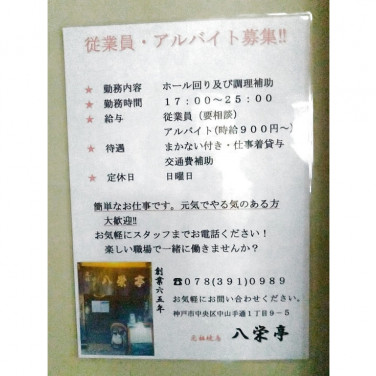 従業員・アルバイト募集!!
★ 勤務内容 ホール回り及び調理補助
★ 勤務時間 17:00～25:00
★ 給与 従業員（要相談）
アルバイト(時給900円～)
★ 待遇 まかない付き・仕事着貸与
交通費補助
★ 定休日 日曜日
簡単なお仕事です。元気でやる気のある方
大歓迎!!
お気軽にスタッフまでお電話ください！
楽しい職場で一緒に働きませんか？
創業六五年
八栄亭
☎078(391)0989
お気軽にお問い合わせください。
神戸市中央区中山手通1丁目9－5
八栄亭